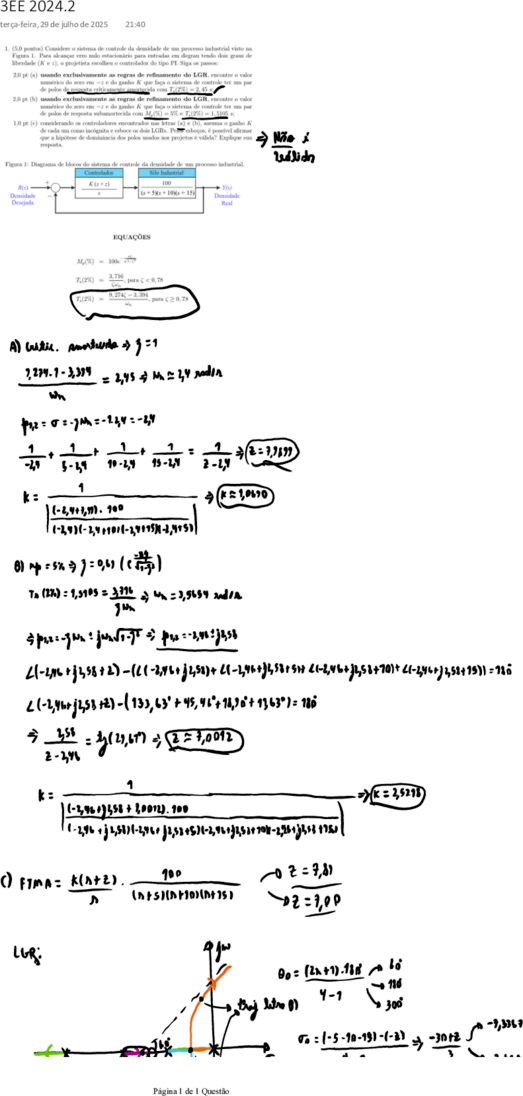 3EE 2024.2
terça-feira, 29 de julho de 2025 21:40
1. (5,0 pontos) Considere o sistema de controle da densidade de um processo industrial visto na
Figura 1. Para alcançar erro nulo estacionário para entradas em degrau tendo dois graus de
liberdade (K e z), o projetista escolheu o controlador do tipo PI. Siga os passos:
2,0 pt (a) usando exclusivamente as regras de refinamento do LGR, encontre o valor
numérico do zero em −z e do ganho K que faça o sistema de controle ter um par
de polos de resposta criticamente amortecida com Ts(2%) = 2,45 s;
2,0 pt (b) usando exclusivamente as regras de refinamento do LGR, encontre o valor
numérico do zero em −z e do ganho K que faça o sistema de controle ter um par
de polos de resposta subamortecida com Mp(%) = 5% e Ts(2%) = 1,5105 s;
1,0 pt (c) considerando os controladores encontrados nas letras (a) e (b), assuma o ganho K
de cada um como incógnita e esboce os dois LGRs. Pelos esboços, é possível afirmar
que a hipótese de dominância dos polos usados nos projetos é válida? Explique sua
resposta.
⇒ Não é
válida
Figura 1: Diagrama de blocos do sistema de controle da densidade de um processo industrial.
Controlador Silo Industrial
R(s) + − K(s+z) / s 100 / (s+5)(s+10)(s+15) Y(s)
Densidade Desejada Densidade Real
EQUAÇÕES
Mp(%) = 100e
Ts(2%) = 3,736 / ζωn, para ζ < 0,78
Ts(2%) = 9,274ζ − 3,394 / ωn, para ζ ≥ 0,78
A) Critic. amortecido ⇒ ζ = 1
9,274·1 − 3,394 / ωn = 2,45 ⇒ ωn ≃ 2,4 rad/s
p1,2 = σ = −ζωn = −1·2,4 = −2,4
1/−2,4 + 1/5−2,4 + 1/10−2,4 + 1/15−2,4 = 1/z−2,4 ⇒
K = 1 / |(−2,4+ ).100 / (−2,4)(−2,4+10)(−2,4+15)(−2,4+5)| ⇒
B) Mp = 5% ⇒ ζ = 0,69
Ts(2%) = 1,5105 = 3,736 / ζωn ⇒ ωn = 3,5654 rad/s
⇒ p1,2 = −ζωn ± jωn√1−ζ² ⇒ p1,2 = −2,46 ± j2,58
∠(−2,46+j2,58+z) − (∠(−2,46+j2,58) + ∠(−2,46+j2,58+5) + ∠(−2,46+j2,58+10) + ∠(−2,46+j2,58+15)) = 180°
∠(−2,46+j2,58+z) − (133,63° + 45,46° + 18,90° + 11,63°) = 180°
⇒ 2,58 / z−2,46 = tg(29,61°) ⇒ z ≃ 7,0012
K = 1 / |(−2,46+j2,58+7,0012).100 / (−2,46+j2,58)(−2,46+j2,58+5)(−2,46+j2,58+10)(−2,46+j2,58+15)| ⇒ K = 2,5298
C) FTMA = K(s+z) / s . 100 / (s+5)(s+10)(s+15)
z = 7,81
z = 7,00
LGR:
jω
60°
θa = (2n+1).180° / 4−1
60°
180°
300°
σa = (−5−10−15)−(−z) ⇒ −30+z / 3
Página 1 de 1 Questão